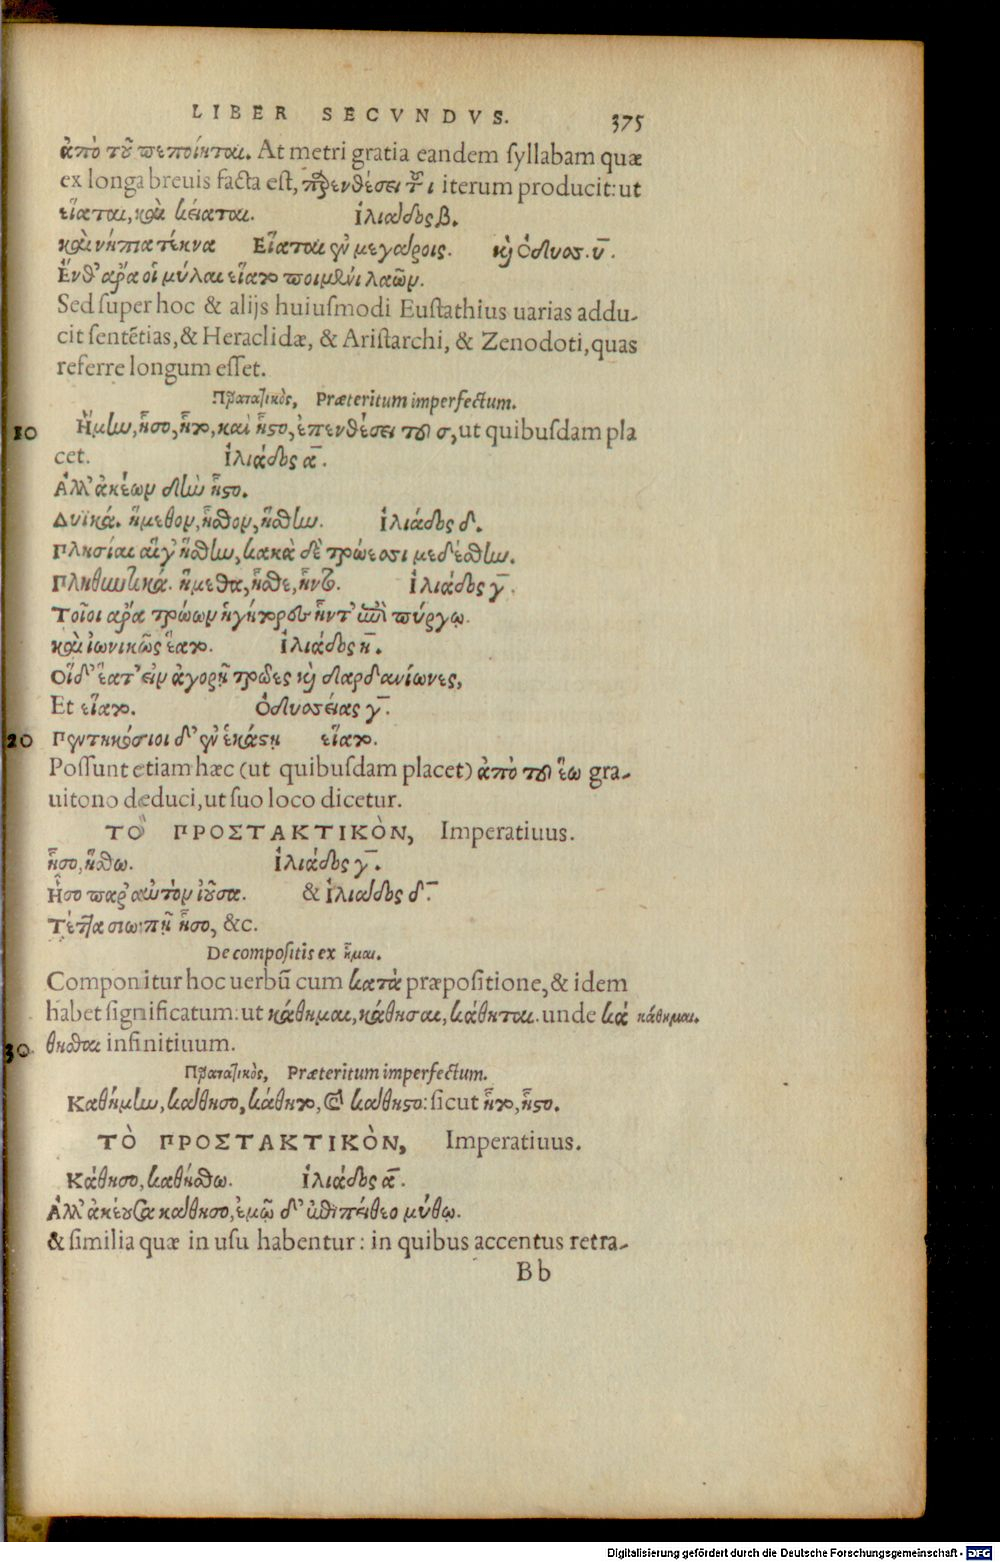 LIBER SECVNDVS. 375
ἀπὸ τοῦ πεποίηται. At metri gratia eandem syllabam quæ
ex longa breuis facta est, παρενθέσει τοῦ ι iterum producit: ut
εἵαται, καὶ κείαται. ἰλιάδος β.
καὶ νήπια τέκνα Εἵαται ἐν μεγάροις. καὶ Ὀδυσσ. υ̅.
Ἔνθ' ἄρα οἱ μύλαι εἵατο ποιμένι λαῶν.
Sed super hoc & alijs huiusmodi Eustathius uarias addu-
cit sentẽtias, & Heraclidæ, & Aristarchi, & Zenodoti, quas
referre longum esset.
Παρατατικὸς, Præteritum imperfectum.
10 Ἥμην, ἧσο, ἧτο, καὶ ἧστο, ἐπενθέσει τοῦ σ, ut quibusdam pla
cet. ἰλιάδος α̅.
Ἀλλ' ἀκέων δὴν ἧστο.
Δυϊκά. ἥμεθον, ἧσθον, ἥσθην. ἰλιάδος δ.
Πλησίαι αἵγ' ἥσθην, κακὰ δὲ τρώεσσι μεδέσθην.
Πληθυντικά. ἥμεθα, ἧσθε, ἧντο. ἰλιάδος γ̅.
Τοῖοι ἄρα τρώων ἡγήτορες ἧντ' ἐπὶ πύργῳ.
καὶ ἰωνικῶς ἕατο. ἰλιάδος η̅.
Οἵδ' ἕατ' εἰν ἀγορῇ τρῶες καὶ δαρδανίωνες,
Et εἵατο. Ὀδυσσείας γ̅.
20 Πεντηκόσιοι δ' ἐν ἑκάστῃ εἵατο.
Possunt etiam hæc (ut quibusdam placet) ἀπὸ τοῦ ἕω gra-
uitono deduci, ut suo loco dicetur.
ΤΟ ΠΡΟΣΤΑΚΤΙΚῸΝ, Imperatiuus.
ἧσο, ἥσθω. ἰλιάδος γ̅.
Ἧσο παρ' αὐτὸν ἰοῦσα. & ἰλιάδος δ̅.
Τέττα σιωπῇ ἧσο, &c.
De compositis ex ἧμαι.
Componitur hoc uerbũ cum κατὰ præpositione, & idem
habet significatum: ut κάθημαι, κάθησαι, κάθηται. unde κα κάθημαι.
30 θῆσθαι infinitiuum.
Παρατατικὸς, Præteritum imperfectum.
Καθήμην, κάθησο, κάθητο, & κάθηστο: sicut ἧτο, ἧστο.
ΤῸ ΠΡΟΣΤΑΚΤΙΚῸΝ, Imperatiuus.
Κάθησο, καθήσθω. ἰλιάδος α̅.
Ἀλλ' ἀκέουσα κάθησο, ἐμῷ δ' ἐπιπείθεο μύθῳ.
& similia quæ in usu habentur: in quibus accentus retra-
Bb
Digitalisierung gefördert durch die Deutsche Forschungsgemeinschaft - DFG